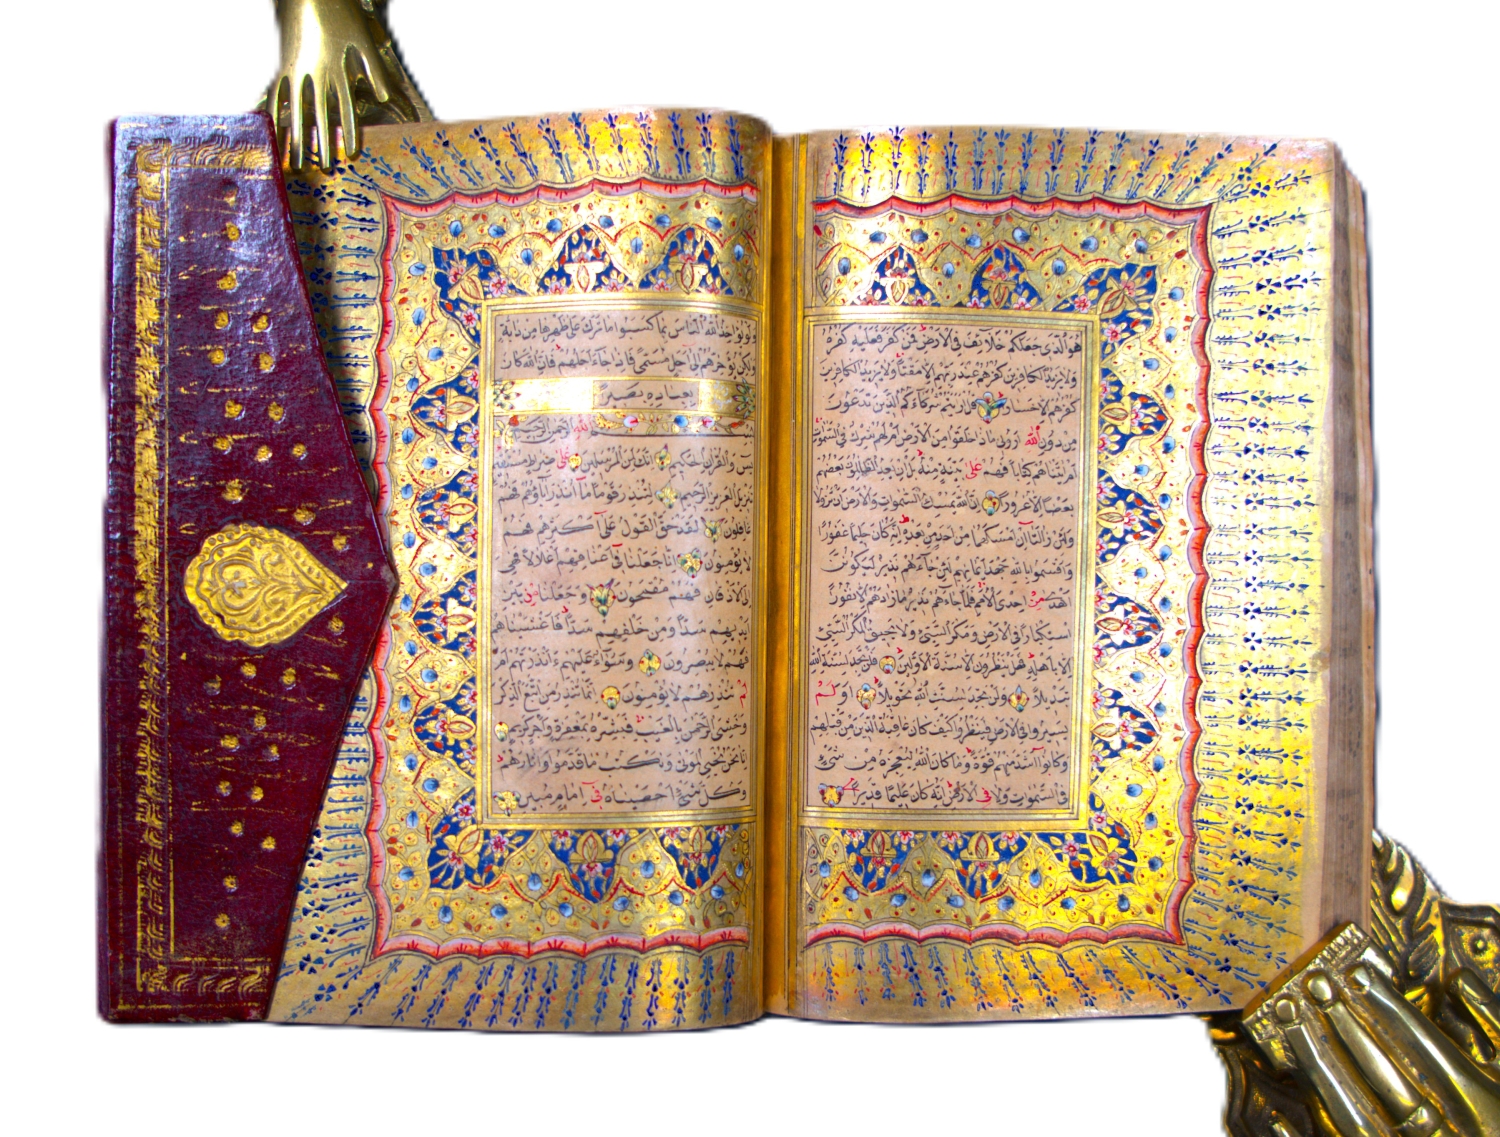 هو الذى جعلكم خلآئف فى الارض فمن كفر فعليه كفره
ولا يزيد الكافرين كفرهم عند ربهم الا مقتا ولا يزيد الكافرين
كفرهم الا خسارا قل ارايتم شركاءكم الذين تدعون
من دون الله ارونى ماذا خلقوا من الارض ام لهم شرك فى السموات
ام اتيناهم كتابا فهم على بينة منه بل ان يعد الظالمون بعضهم
بعضا الا غرورا ان الله يمسك السموات والارض ان تزولا
ولئن زالتا ان امسكهما من احد من بعده انه كان حليما غفورا
واقسموا بالله جهد ايمانهم لئن جآءهم نذير ليكونن
اهدى من احدى الامم فلما جاءهم نذير ما زادهم الا نفورا
استكبارا فى الارض ومكر السيئ ولا يحيق المكر السيئ
الا باهله فهل ينظرون الا سنة الاولين فلن تجد لسنة الله
تبديلا ولن تجد لسنت الله تحويلا اولم
يسيروا فى الارض فينظروا كيف كان عاقبة الذين من قبلهم
وكانوا اشد منهم قوة وما كان الله ليعجزه من شىء
فى السموات ولا فى الارض انه كان عليما قديرا
ولو يؤاخذ الله الناس بما كسبوا ما ترك على ظهرها من دابة
ولكن يؤخرهم الى اجل مسمى فاذا جآء اجلهم فان الله كان
بعباده بصيرا
الله الرحمن الرحيم
يس والقرآن الحكيم انك لمن المرسلين على صراط مستقيم
تنزيل العزيز الرحيم لتنذر قوما ما انذر اباؤهم فهم
غافلون لقد حق القول على اكثرهم فهم
لا يؤمنون انا جعلنا فى اعناقهم اغلالا فهى
الى الاذقان فهم مقمحون وجعلنا من بين
ايديهم سدا ومن خلفهم سدا فاغشيناهم
فهم لا يبصرون وسوآء عليهم ءانذرتهم ام
لم تنذرهم لا يؤمنون انما تنذر من اتبع الذكر
وخشى الرحمن بالغيب فبشره بمغفرة واجر كريم
انا نحن نحيى الموتى ونكتب ما قدموا واثارهم
وكل شىء احصيناه فى امام مبين